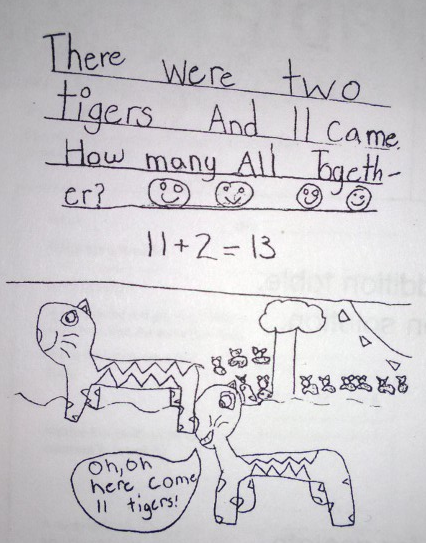 There were two
tigers And 11 came.
How many All Togeth-
er?
11+2=13
oh,oh
here come
11 tigers!
ddition table.
n solution